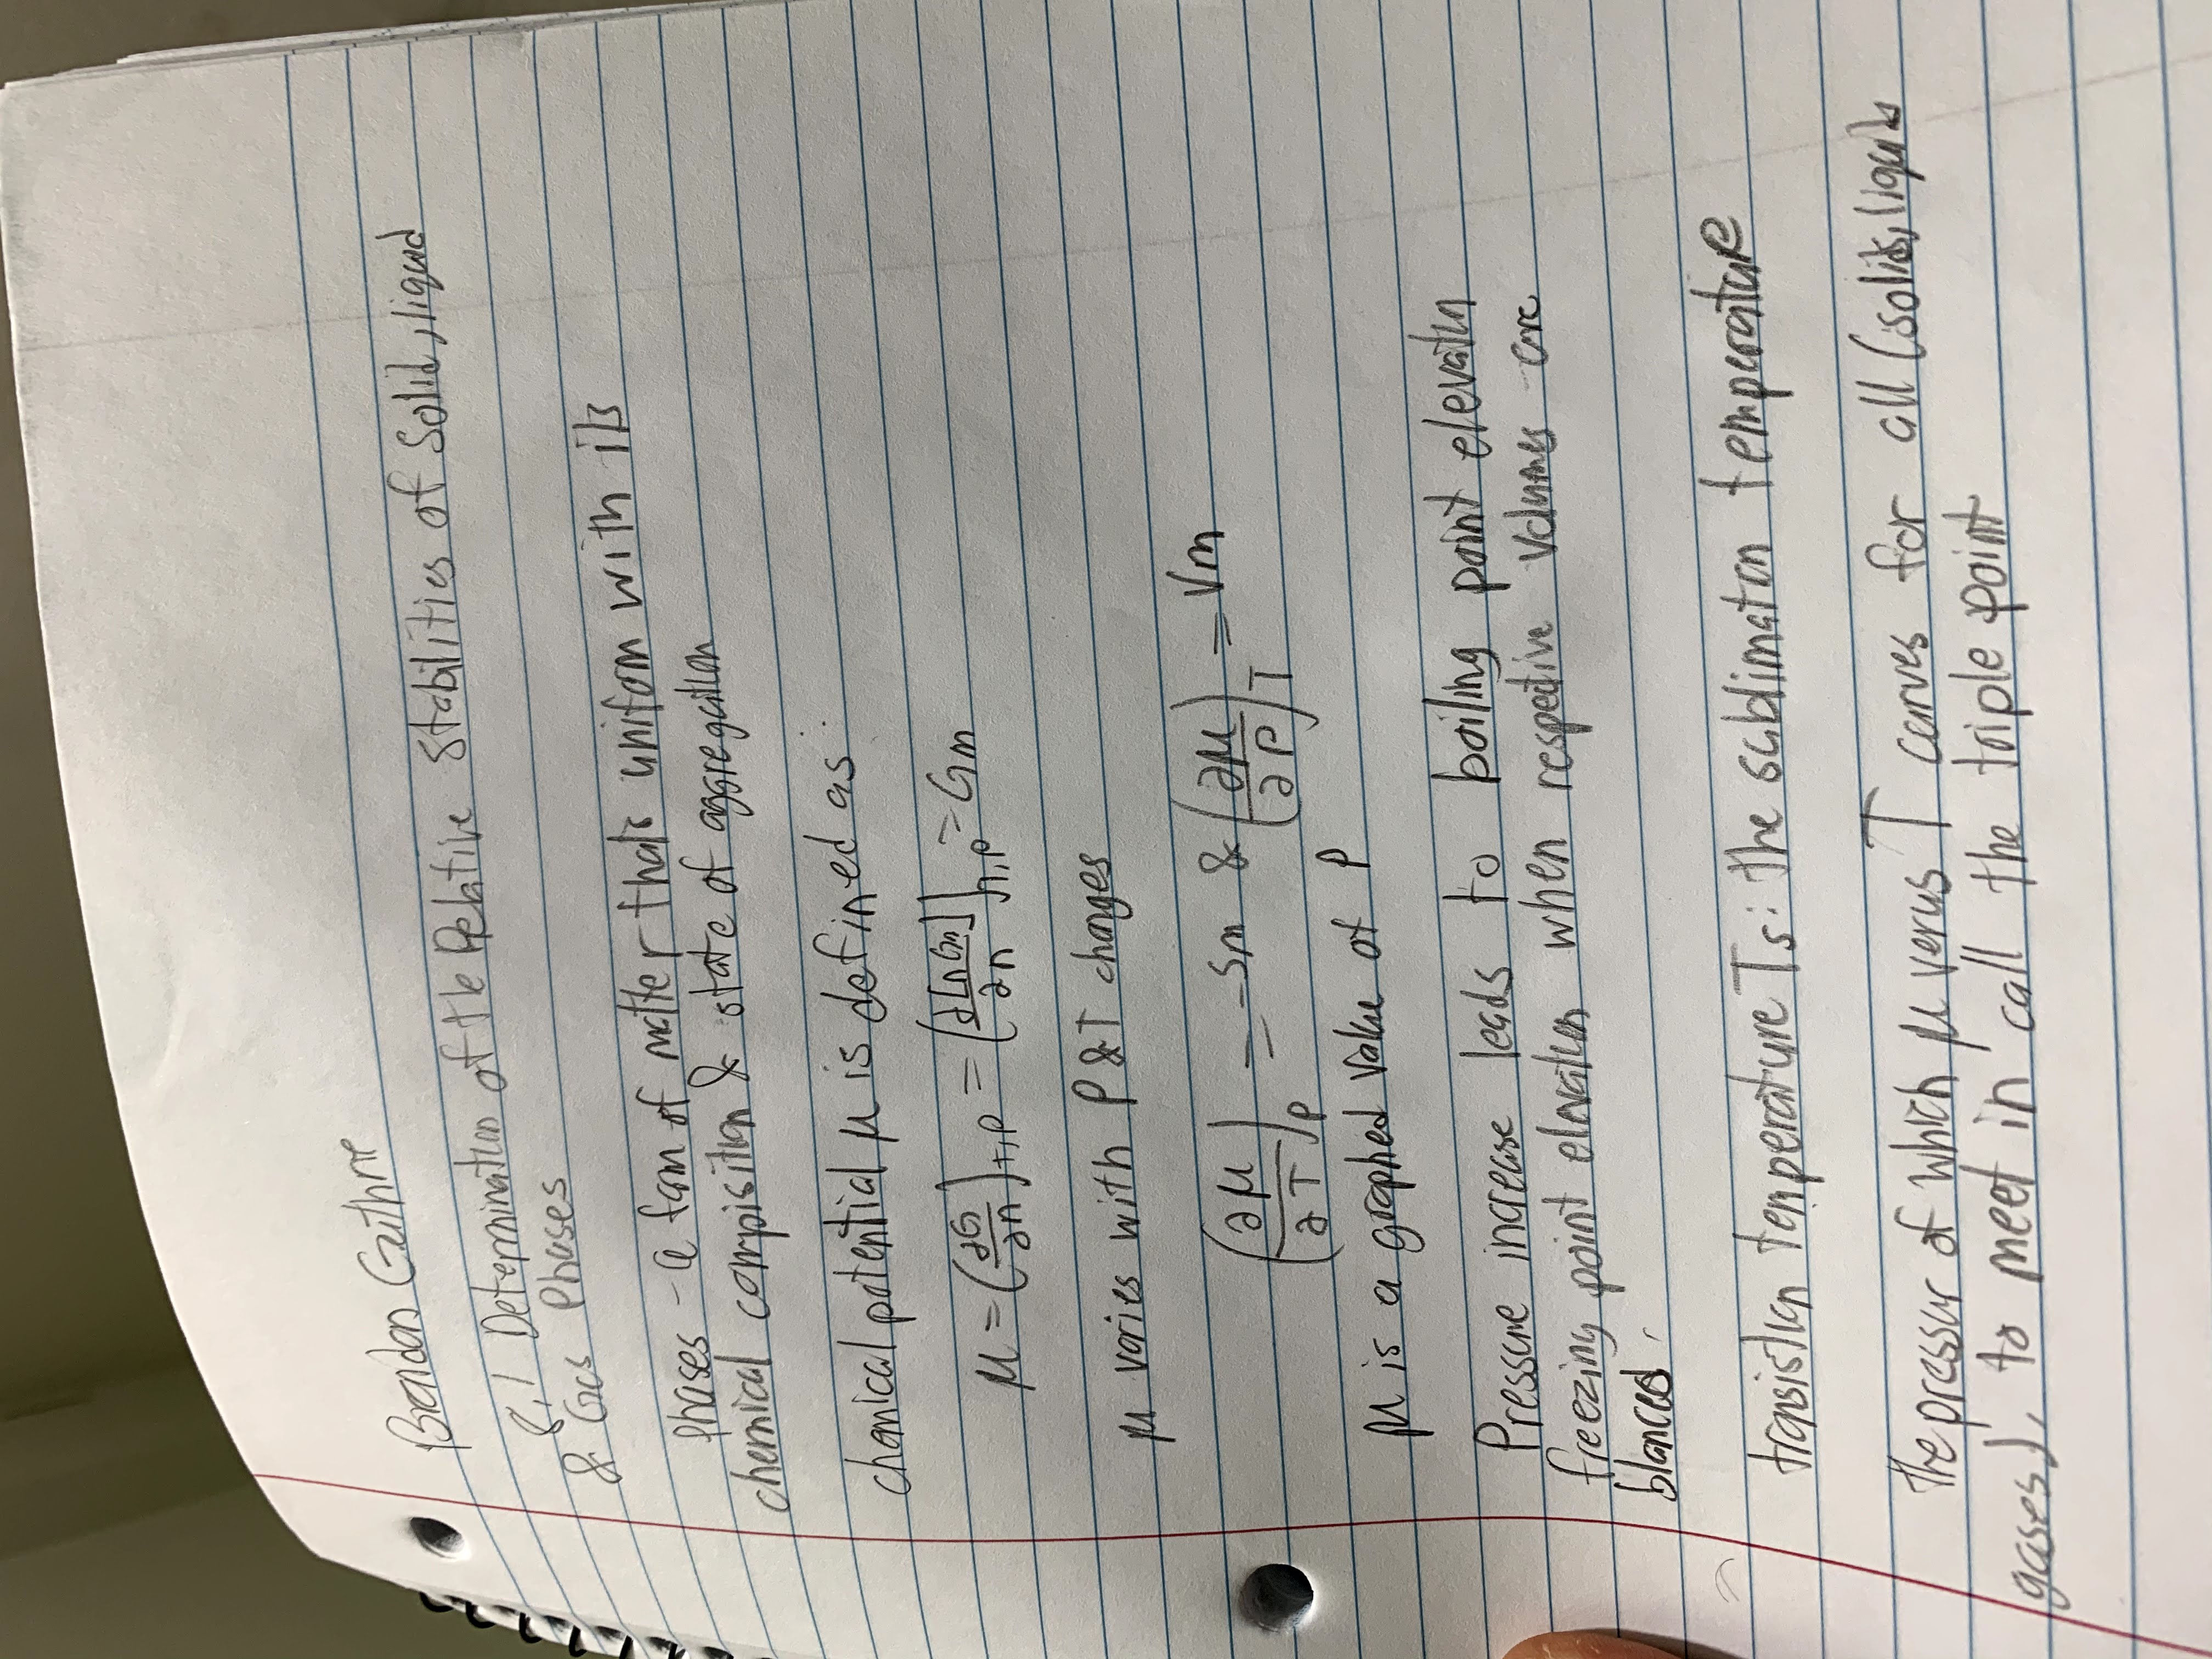 Brandon Guthrie
8.1 Determination of the Relative Stabilities of Solid, liquid
& Gas Phases
phases - a form of matter that's uniform with its
chemical compisition & state of aggregation
chemical potential μ is defined as:
μ = (∂G/∂n)T,P = (∂[nGm]/∂n)T,P = Gm
μ varies with P & T changes
(∂μ/∂T)P = -Sm & (∂μ/∂P)T = Vm
μ is a graphed value of P
Pressure increase leads to boiling point elevation
freezing point elevation when respective volumes are
blanced.
transistion temperature Ts: the sublimaton temperature
the pressur of which μ verus T curves for all (solids, liquids
gases), to meet in call the triple point